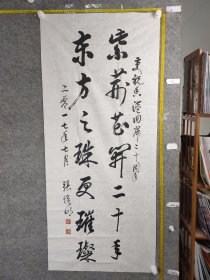 庆祝香港回归二十周年
紫荆花开二十年
东方之珠更璀璨
二零一七年七月